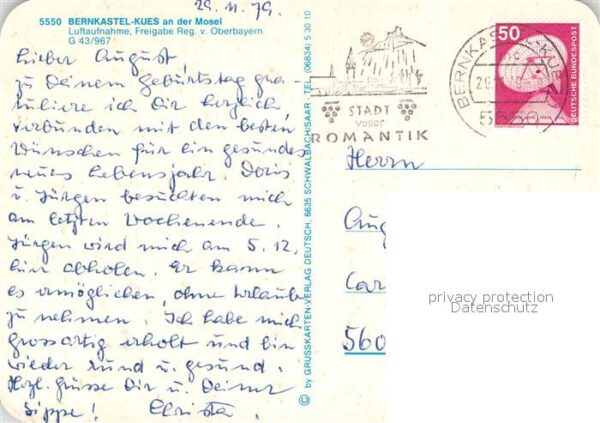 29.11.79.
5550 BERNKASTEL-KUES an der Mosel
Luftaufnahme, Freigabe Reg. v. Oberbayern
G 43/967
Lieber August,
zu Deinem Geburtstag gra-
tuliere ich Dir herzlich
verbunden mit den besten
Wünschen für ein gesundes
neues Lebensjahr. Doris
u. Jürgen besuchten mich
am letzten Wochenende.
Jürgen wird mich am 5.12.
hier abholen. Er kann
es ermöglichen, ohne Urlaub
zu nehmen. Ich habe mich
grossartig erholt und bin
wieder rund u. gesund.
Herzl. Grüsse Dir u. Deiner
Sippe! Christa
© by GRUSSKARTEN-VERLAG DEUTSCH, 6635 SCHWALBACH/SAAR, TEL. (06834) 5 30 10
STADT
voller
ROMANTIK
BERNKASTEL-KUES
50
DEUTSCHE BUNDESPOST
Herrn
Aug
Car
560
privacy protection
Datenschutz